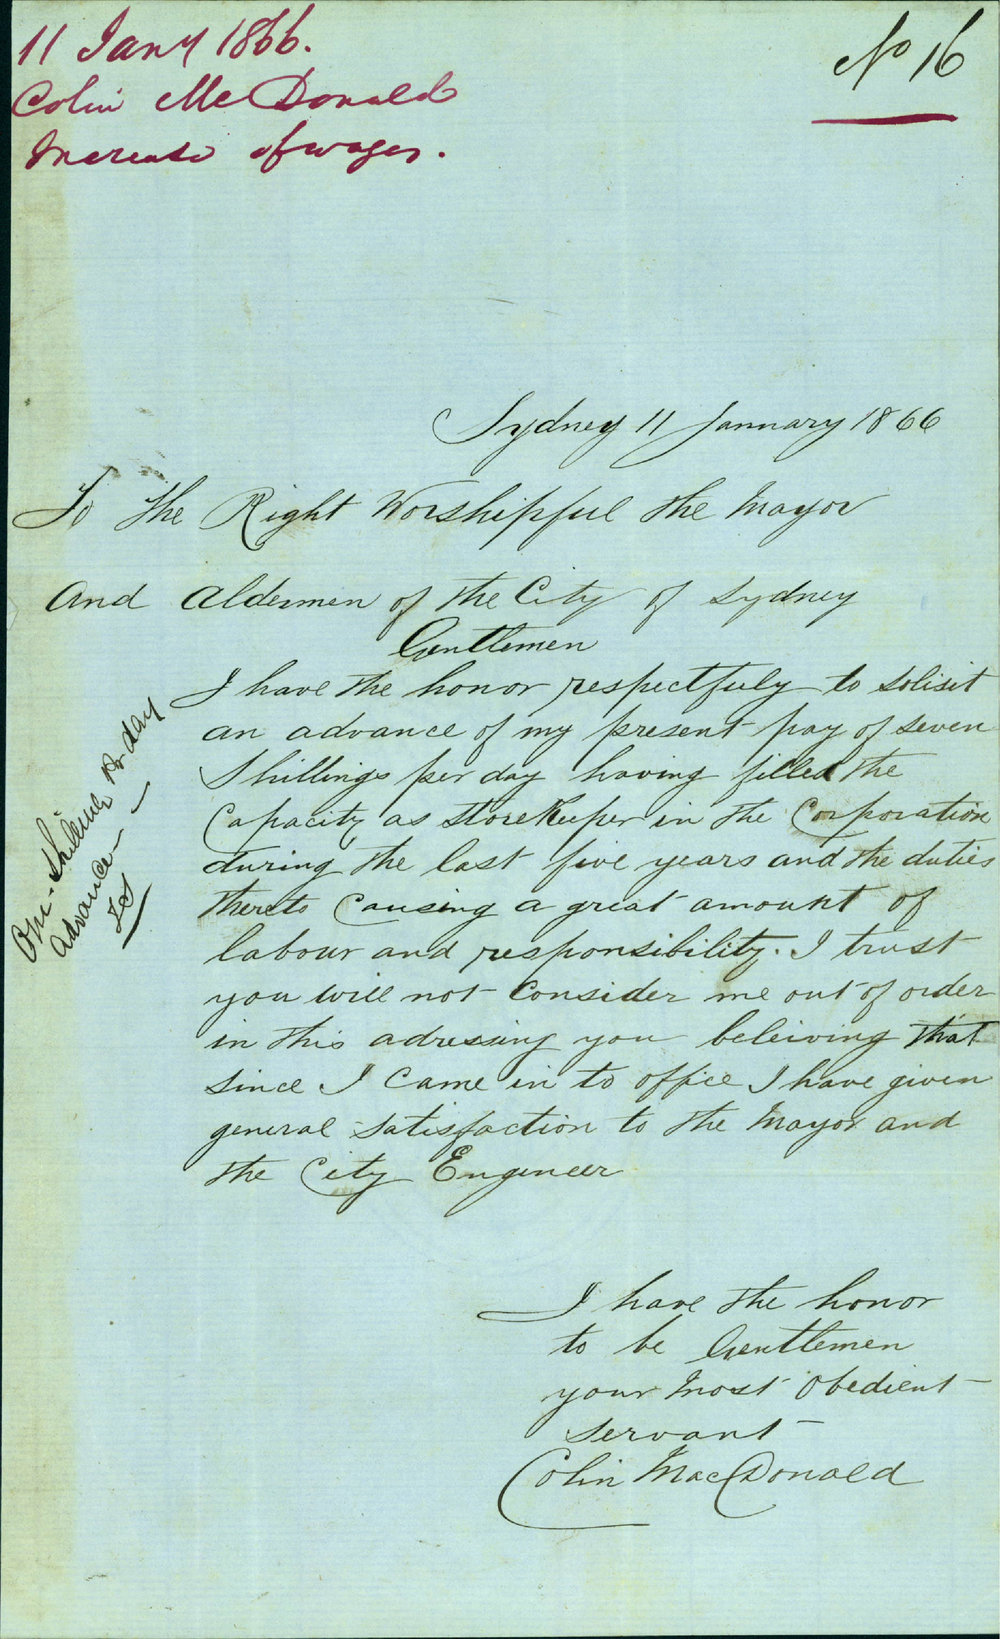 11 Jany 1866.
Colin McDonald
Increase of wages.
No 16
Sydney 11 January 1866
To the Right Worshipful the Mayor
And Aldermen of the City of Sydney
Gentlemen
I have the honor respectfuly to solisit
an advance of my present pay of seven
Shillings per day having filled the
Capacity as Store Keeper in the Corporation
during the last five years and the duties
thereto Causing a great amount of
labour and responsibility. I trust
you will not Consider me out of order
in this adressing you beleiving that
since I Came in to office I have given
general satisfaction to the Mayor and
the City Engineer
One Shilling Pr day
advance
I have the honor
to be Gentlemen
your most obedient
servant
Colin MacDonald